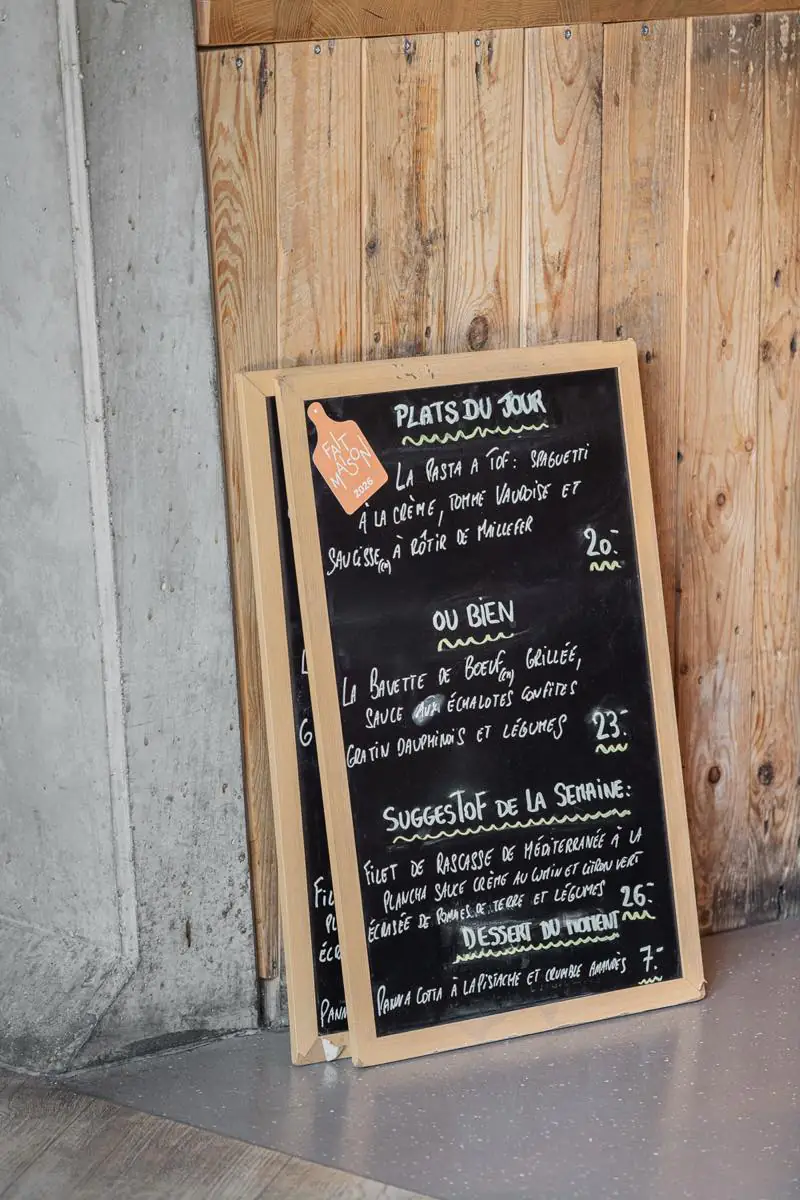 FAIT
MAISON
2026
PLATS DU JOUR
LA PASTA A TOF: SPAGUETTI
À LA CRÈME, TOMME VAUDOISE ET
SAUCISSE (CH) À RÔTIR DE MAILLEFER
20.-
OU BIEN
LA BAVETTE DE BOEUF (CH) GRILLÉE,
SAUCE AUX ÉCHALOTES CONFITES
GRATIN DAUPHINOIS ET LÉGUMES
23.-
SUGGESTOF DE LA SEMAINE:
FILET DE RASCASSE DE MÉDITERRANÉE À LA
PLANCHA SAUCE CRÈME AU CUMIN ET CITRON VERT
ÉCRASÉE DE POMMES DE TERRE ET LÉGUMES 26.-
DESSERT DU MOMENT
PANNA COTTA À LA PISTACHE ET CRUMBLE AMANDES 7.-
L
G
FIL
PL
ÉCR
PANN